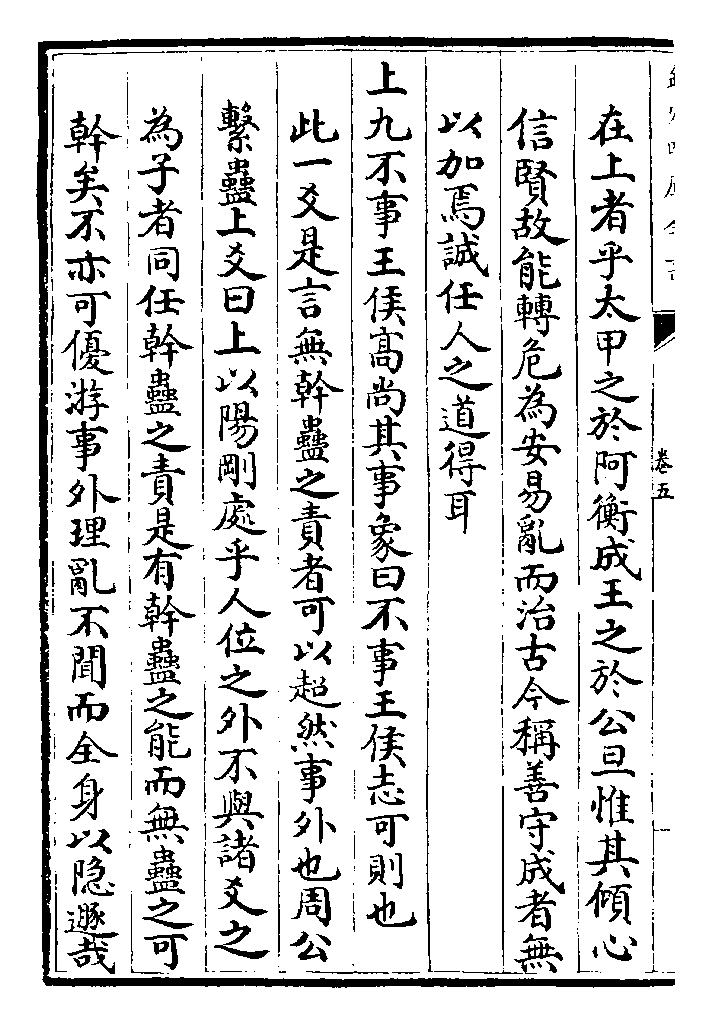 在上者乎太甲之於阿衡成王之於公旦惟其傾心
信賢故能轉危為安易亂而治古今稱善守成者無
以加焉誠任人之道得耳
上九不事王侯髙尚其事象曰不事王侯志可則也
此一爻是言無幹蠱之責者可以超然事外也周公
繫蠱上爻曰上以陽剛處乎人位之外不與諸爻之
為子者同任幹蠱之責是有幹蠱之能而無蠱之可
幹矣不亦可優游事外理亂不聞而全身以隐遯哉
卷五